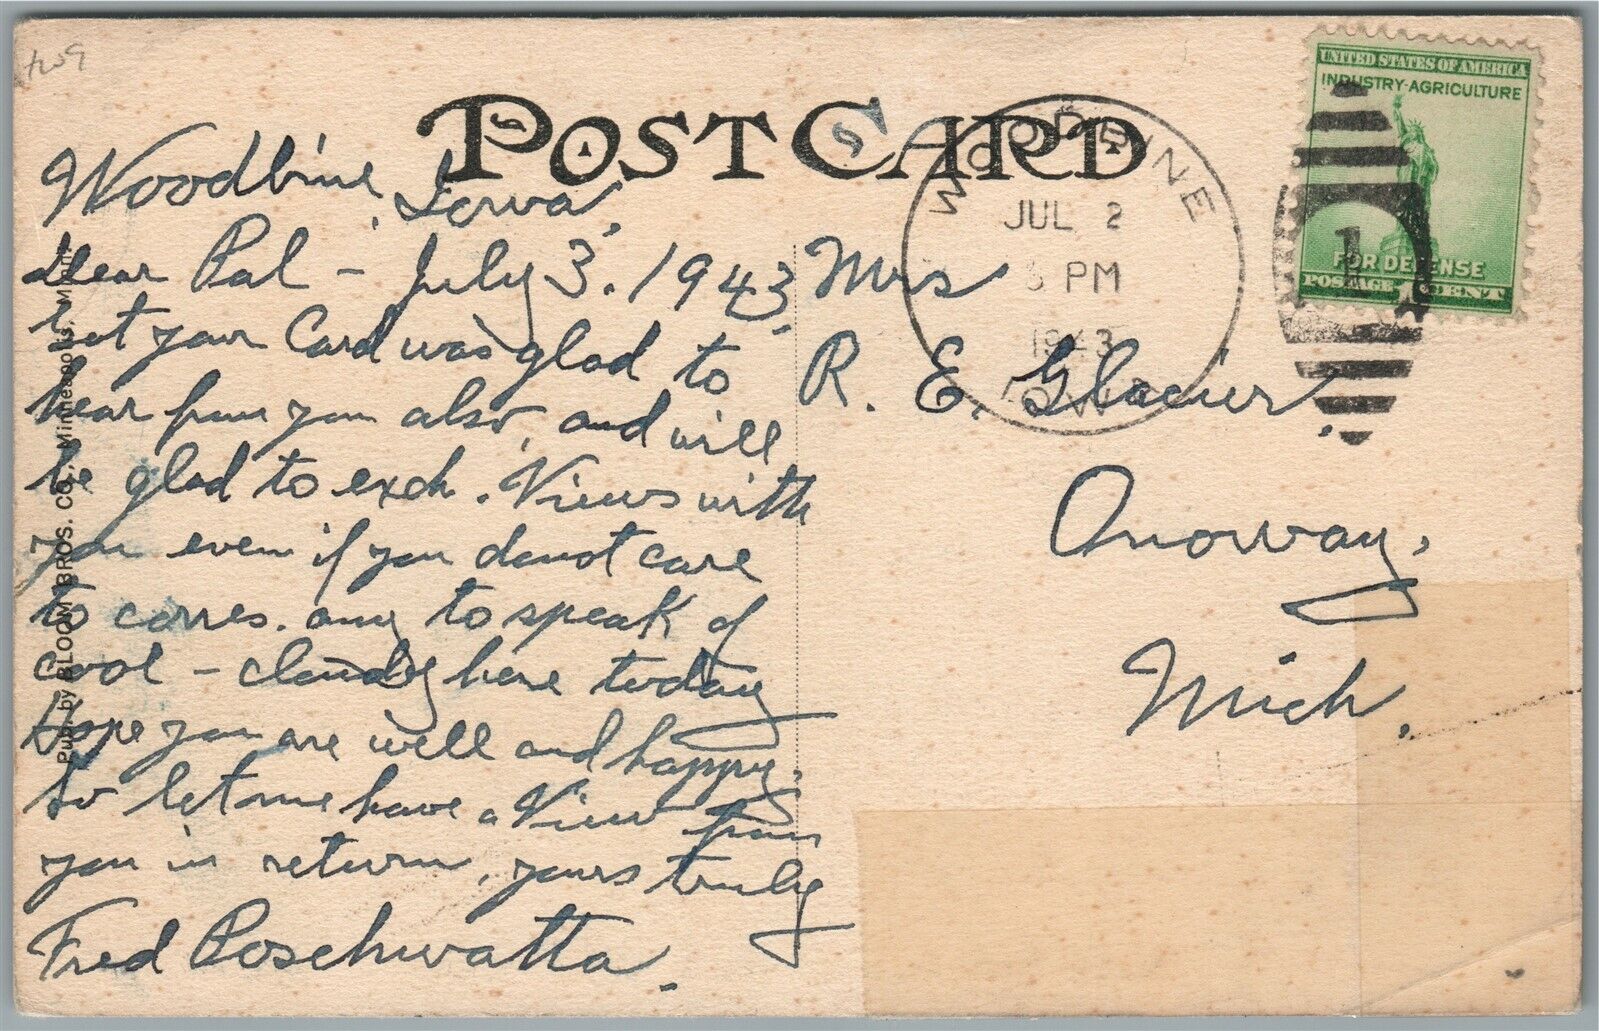 POST CARD
Woodbine, Iowa,
Dear Pal - July 3. 1943,
Got your Card was glad to
hear from you also, and will
be glad to exch. Views with
you even if you do not care
to corres. any to speak of
cool - cloudy here today
Hope you are well and happy,
so let me have a View from
you in return, yours truly
Fred Poschwatta.
Pub. by BLOOM BROS. CO., Minneapolis, Minn.
WOODBINE
JUL 2
PM
1943
IOWA
UNITED STATES OF AMERICA
INDUSTRY-AGRICULTURE
FOR DEFENSE
POSTAGE 1 CENT
1
Mrs
R. E. Glacier,
Onoway,
Mich.